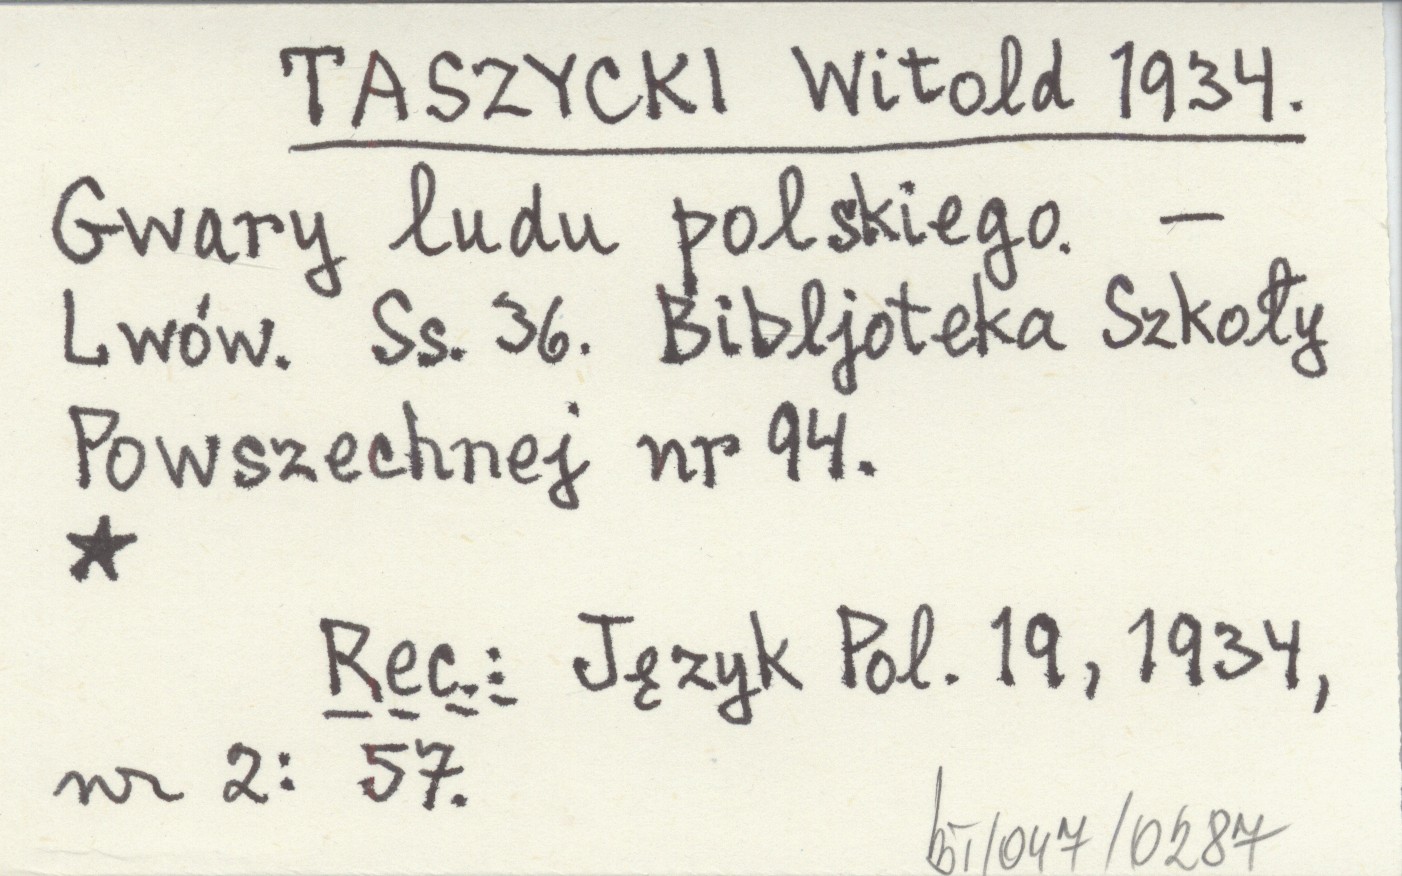 TASZYCKI Witold 1934.
Gwary ludu polskiego. –
Lwów. Ss. 36. Bibljoteka Szkoły
Powszechnej nr 94.
★
Rec.: Język Pol. 19, 1934,
nr 2: 57.
bī/047/0287